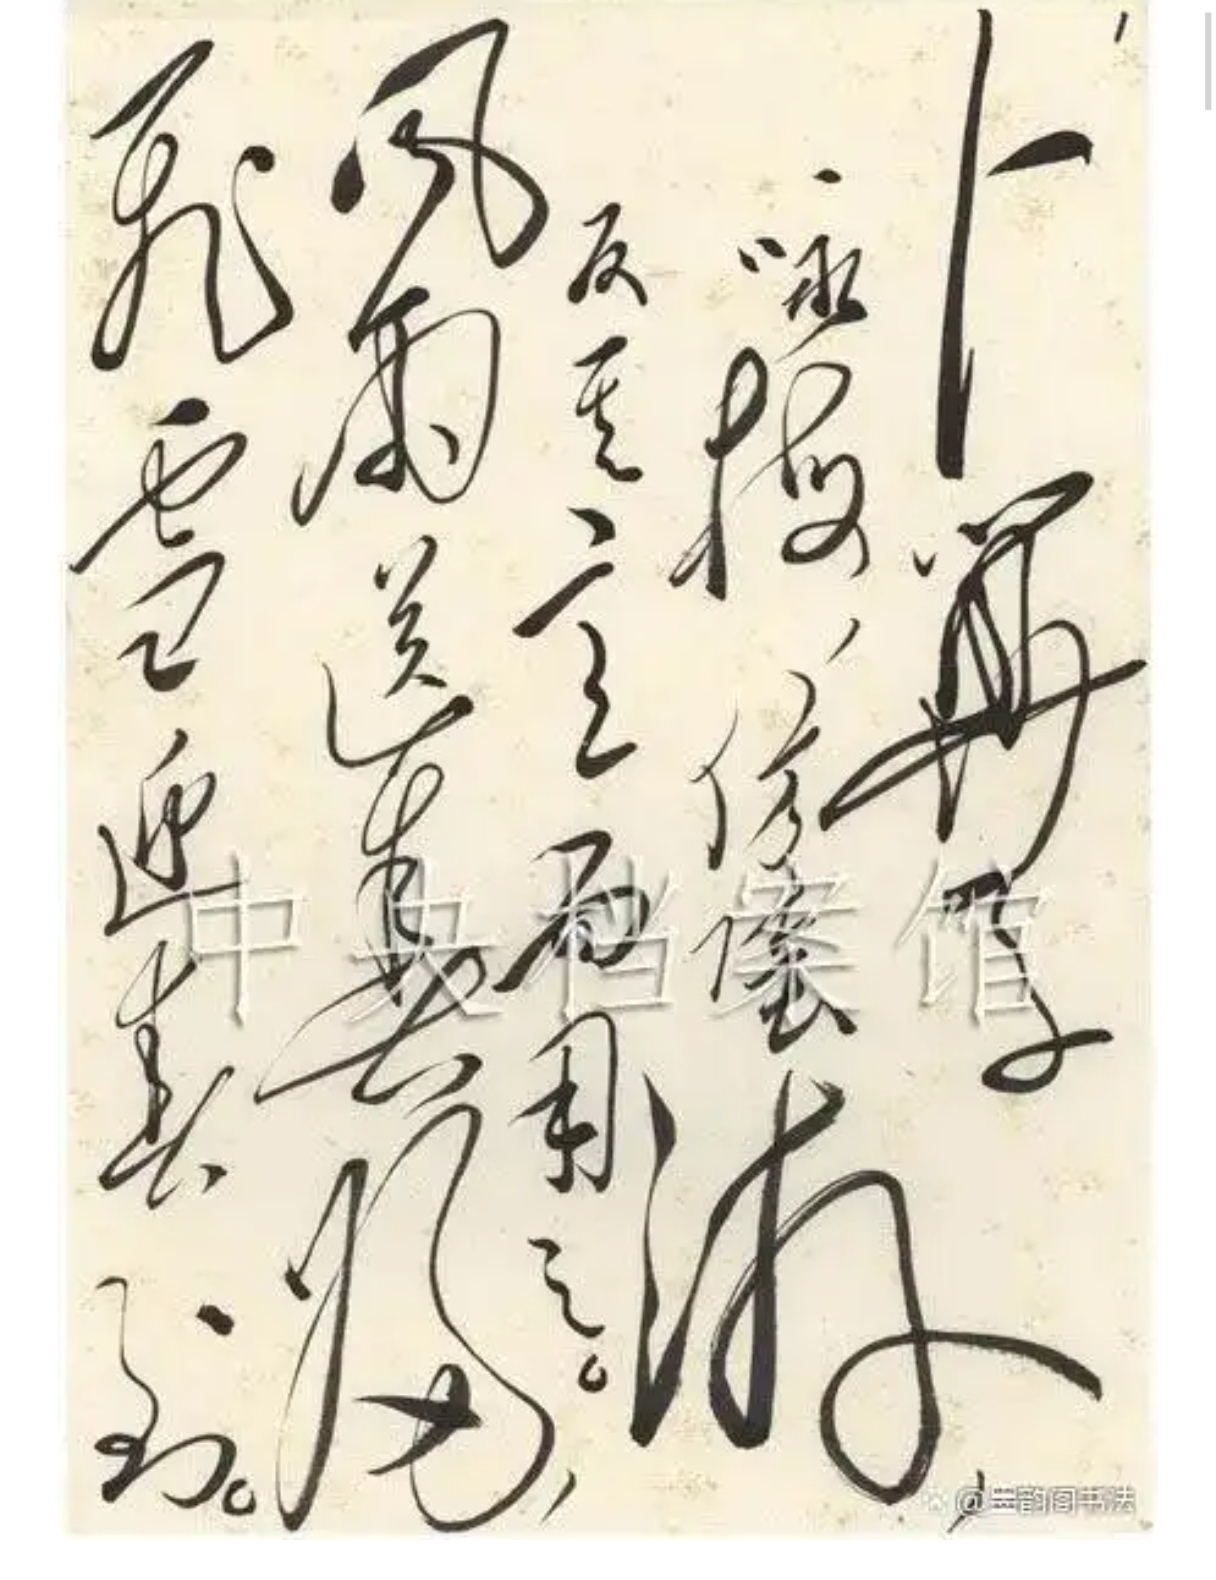 卜算子
咏梅、仿陆游、
反其意而用之。
风雨送春归、
飞雪迎春到。
中央档案馆
韵阁书法